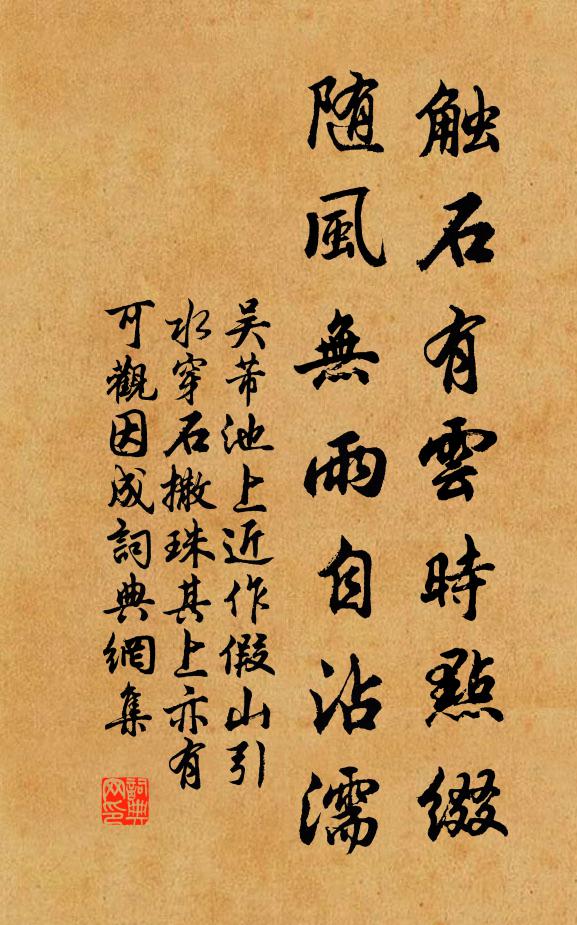 触石有雲時點綴
随風無雨自沾濡
吴芾池上近作假山引
水穿石撒珠其上亦有
可觀因成詞典網集
詞典网印